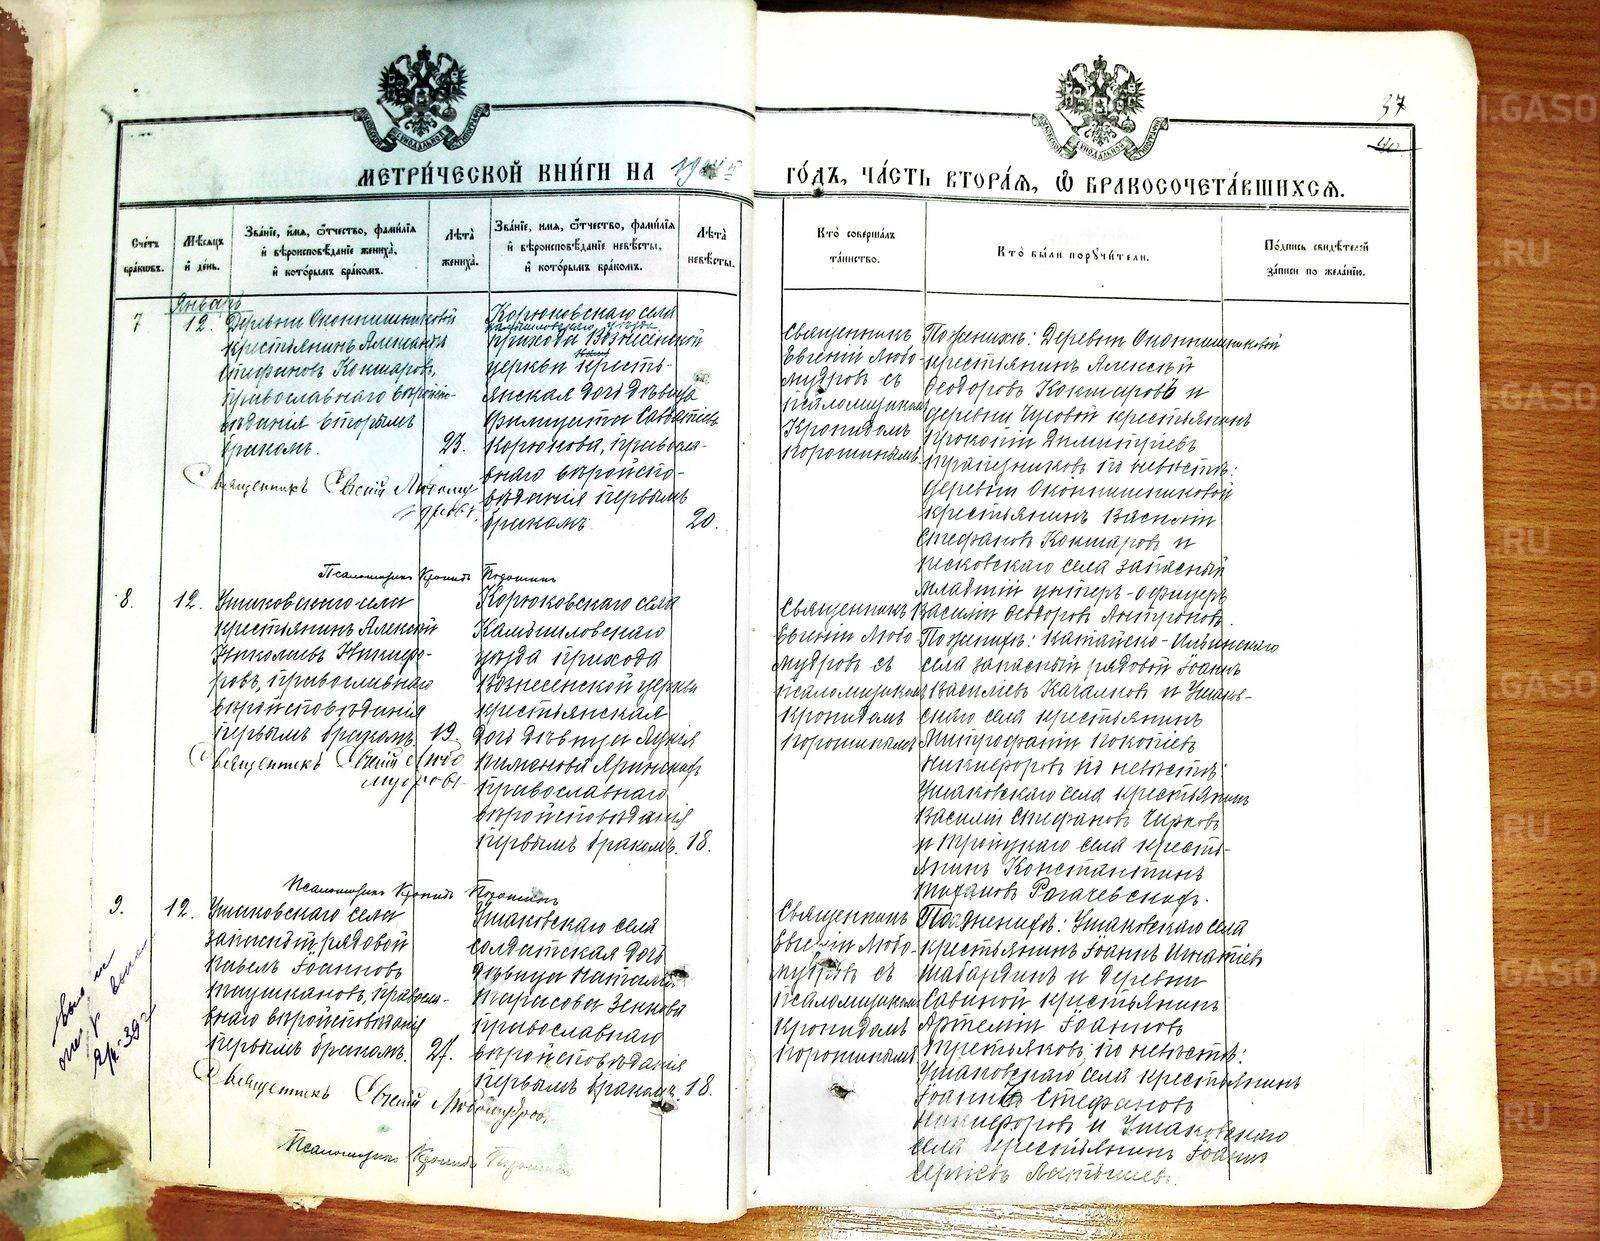 МЕТРИ́ЧЕСКОЙ КНИ́ГИ НА
ГО́ДЪ, ЧА́СТЬ ВТОРА́Ѧ, Ѽ БРАКОСОЧЕТА́ВШИХСѦ.
37
40
Сче́тъ бра́кѡвъ.
Мѣ́сѧцъ и҆ де́нь.
Зва́нїе, и҆́мѧ, ѻ҆́тчество, фами́лїѧ и҆ вѣроисповѣ́данїе жениха́, и҆ кото́рымъ бра́комъ.
Лѣта̀ жениха́.
Зва́нїе, и҆́мѧ, ѻ҆́тчество, фами́лїѧ и҆ вѣроисповѣ́данїе невѣ́сты, и҆ кото́рымъ бра́комъ.
Лѣта̀ невѣ́сты.
Кто̀ соверша́лъ та́инство.
Кто̀ бы́ли порꙋчи́тели.
По́дпись свидѣ́телей за́писи по жела́нїю.
Январь
7
12.
Деревни Оконишниковой
крестьянинъ Алексанъ
Стефановъ Кокшаровъ,
православнаго вѣроиспо-
вѣданія вторымъ
бракомъ.
23.
Священникъ Евгеній Любому
дровъ.
Корюковскаго села
Камышловскаго уѣзда
прихода Вознесенской
церкви кресть-
янская дочь дѣвица
Савватіева
Корюкова, правосла-
внаго вѣроиспо-
вѣданія первымъ
бракомъ.
20.
Псаломщикъ Кронидъ Порошинъ
Священникъ
Евгеній Любо-
мудровъ съ
псаломщикомъ
Кронидомъ
Порошинымъ.
По женихѣ: Деревни Оконишниковой
крестьянинъ Алексѣй
Ѳеодоровъ Кокшаровъ и
деревни Чусовой крестьянинъ
Прокопій Димитріевъ
по невѣстѣ:
деревни Оконишниковой
крестьянинъ Василій
Стефановъ Кокшаровъ и
Песковскаго села запасный
младшій унтеръ-офицеръ
Василій Ѳеодоровъ
8.
12.
Ушаковскаго села
крестьянинъ Алексѣй
Николаевъ Никифо-
ровъ, православнаго
вѣроисповѣданія
первымъ бракомъ
19.
Священникъ Евгеній Любо
мудровъ.
Корюковскаго села
Камышловскаго
уѣзда прихода
Вознесенской церкви
крестьянская
дочь дѣвица
православнаго
вѣроисповѣданія
первымъ бракомъ.
18.
Псаломщикъ Кронидъ Порошинъ
Священникъ
Евгеній Любо
мудровъ съ
псаломщикомъ
Кронидомъ
Порошинымъ
По женихѣ: Катайско-Ильинскаго
села запасный рядовой Іоаннъ
Василіевъ и Ушаков-
скаго села крестьянинъ
Митрофаній
Никифоровъ по невѣстѣ:
Ушаковскаго села крестьянинъ
Василій Стефановъ
и Троицкаго села кресть-
янинъ Константинъ
9.
12.
Ушаковскаго села
запасный рядовой
Павелъ Іоанновъ
Таушкановъ, правосла-
внаго вѣроисповѣданія
первымъ бракомъ.
27.
Священникъ Евгеній Любомудровъ
Ушаковскаго села
солдатская дочь
дѣвица Наталія
Тарасова Зенкова
православнаго
вѣроисповѣданія
первымъ бракомъ.
18.
Псаломщикъ Кронидъ Порошинъ
Священникъ
Евгеній Любо-
мудровъ съ
псаломщикомъ
Кронидомъ
Порошинымъ
По женихѣ: Ушаковскаго села
крестьянинъ Іоаннъ Игнатіевъ
Шабардинъ и деревни
Савиной крестьянинъ
Артемій Іоанновъ
Третьяковъ; по невѣстѣ:
Ушаковскаго села крестьянинъ
Іоаннъ Стефановъ
Никифоровъ и Ушаковскаго
села крестьянинъ Іоаннъ
Сергіевъ